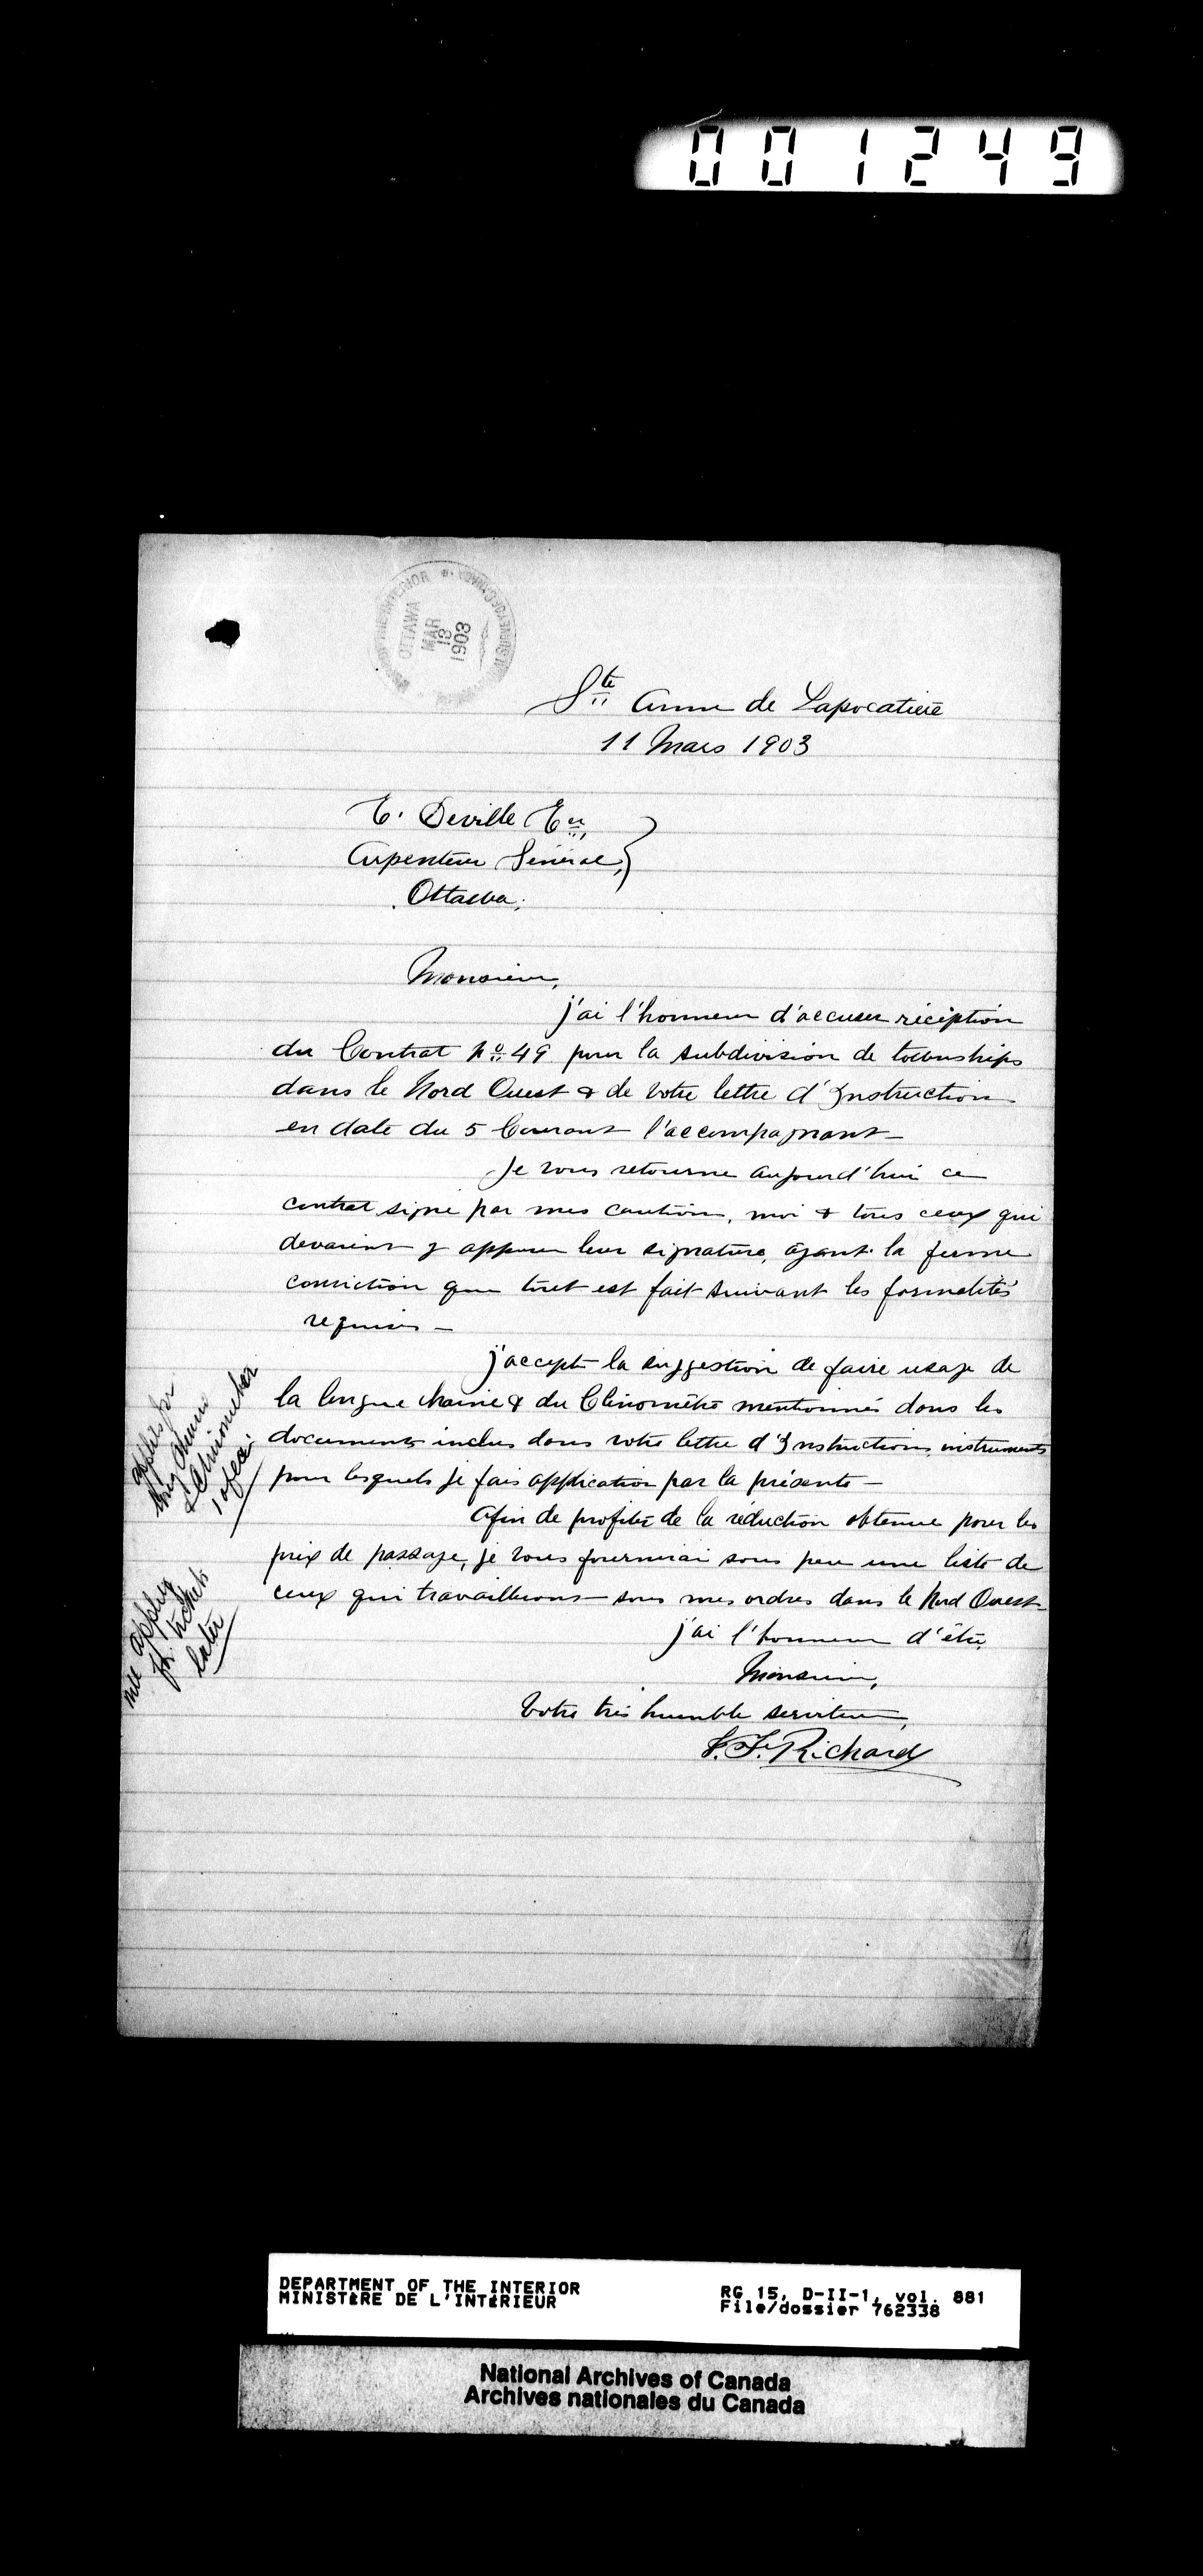 001249
OTTAWA
MAR
13
1903
Ste Anne de Lapocatière
11 Mars 1903
E. Deville Ecr,
Arpenteur Général,
Ottawa.
Monsieur,
j'ai l'honneur d'accuser réception
du Contrat No 49 pour la subdivision de townships
dans le Nord Ouest & de votre lettre d'Instruction
en date du 5 Courant l'accompagnant—
Je vous retourne aujourd'hui ce
contrat signé par mes cautions, moi & tous ceux qui
devaient y apposer leur signature, ayant la ferme
conviction que tout est fait suivant les formalités
requises—
j'accepte la suggestion de faire usage de
la longue chaine & du Clinomètre mentionnés dans les
documents inclus dans votre lettre d'Instructions, instruments
pour lesquels je fais application par la présente—
Afin de profiter de la réduction obtenue pour les
prix de passage, je vous fournirai sous peu une liste de
ceux qui travaillerons sous mes ordres dans le Nord Ouest
j'ai l'honneur d'être,
Monsieur,
Votre très humble serviteur,
J. F. Richard
applies for
long chain
& clinometer
will apply
for tickets
later
DEPARTMENT OF THE INTERIOR
MINISTÈRE DE L'INTÉRIEUR
RG 15, D-II-1, vol. 881
File/dossier 762338
National Archives of Canada
Archives nationales du Canada